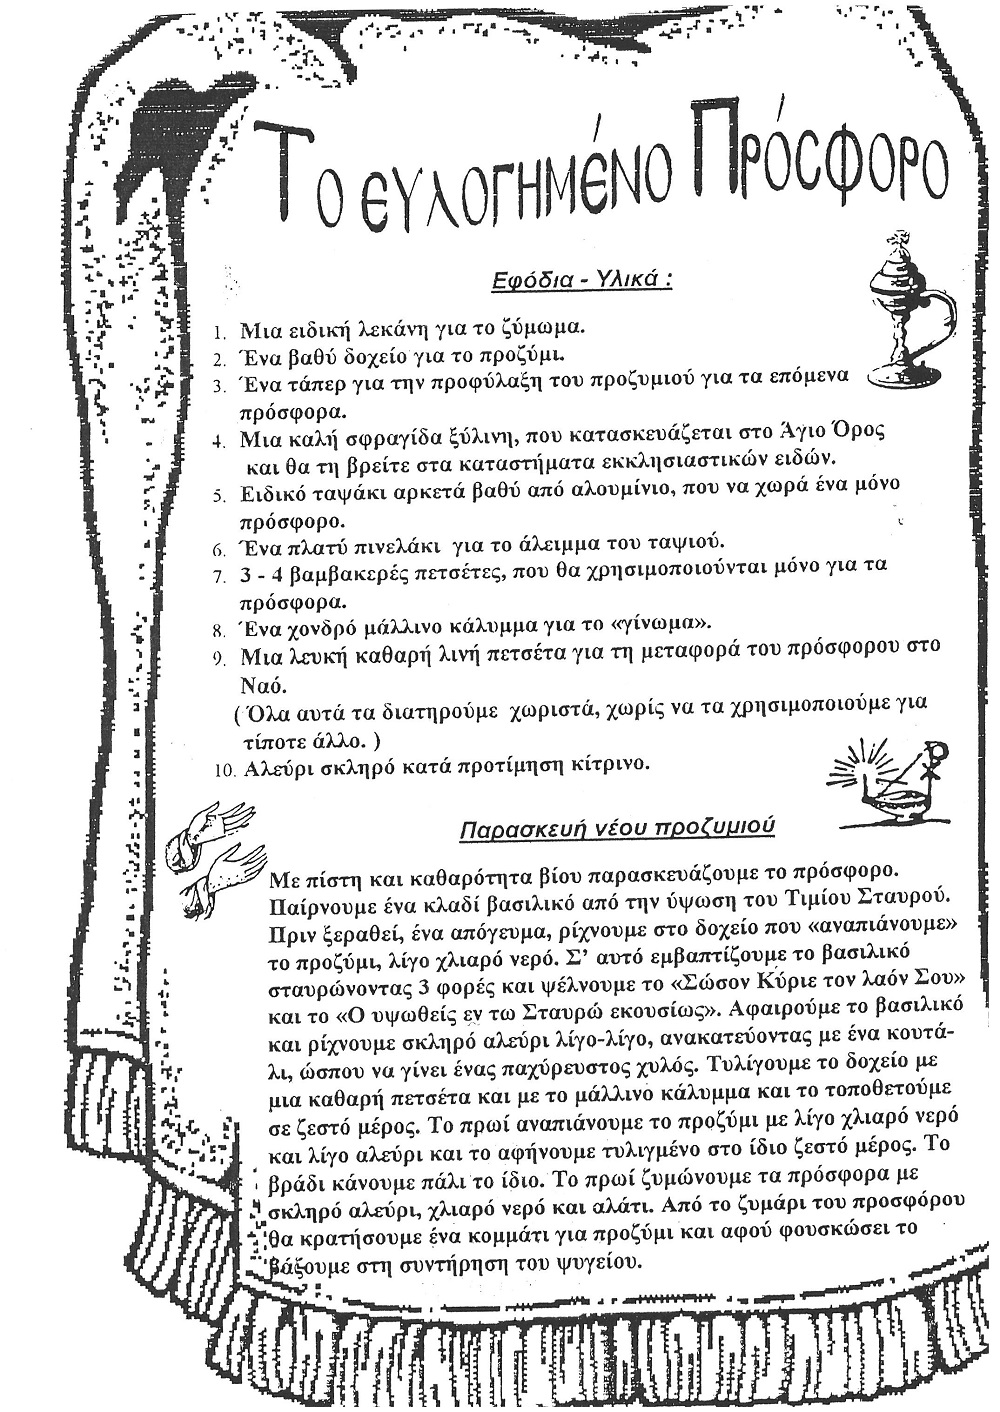 Το ευλογημένο Πρόσφορο
Εφόδια - Υλικά :
1. Μια ειδική λεκάνη για το ζύμωμα.
2. Ένα βαθύ δοχείο για το προζύμι.
3. Ένα τάπερ για την προφύλαξη του προζυμιού για τα επόμενα
πρόσφορα.
4. Μια καλή σφραγίδα ξύλινη, που κατασκευάζεται στο Άγιο Όρος
και θα τη βρείτε στα καταστήματα εκκλησιαστικών ειδών.
5. Ειδικό ταψάκι αρκετά βαθύ από αλουμίνιο, που να χωρά ένα μόνο
πρόσφορο.
6. Ένα πλατύ πινελάκι για το άλειμμα του ταψιού.
7. 3 - 4 βαμβακερές πετσέτες, που θα χρησιμοποιούνται μόνο για τα
πρόσφορα.
8. Ένα χονδρό μάλλινο κάλυμμα για το «γίνωμα».
9. Μια λευκή καθαρή λινή πετσέτα για τη μεταφορά του πρόσφορου στο
Ναό.
( Όλα αυτά τα διατηρούμε χωριστά, χωρίς να τα χρησιμοποιούμε για
τίποτε άλλο. )
10. Αλεύρι σκληρό κατά προτίμηση κίτρινο.
Παρασκευή νέου προζυμιού
Με πίστη και καθαρότητα βίου παρασκευάζουμε το πρόσφορο.
Παίρνουμε ένα κλαδί βασιλικό από την ύψωση του Τιμίου Σταυρού.
Πριν ξεραθεί, ένα απόγευμα, ρίχνουμε στο δοχείο που «αναπιάνουμε»
το προζύμι, λίγο χλιαρό νερό. Σ' αυτό εμβαπτίζουμε το βασιλικό
σταυρώνοντας 3 φορές και ψέλνουμε το «Σώσον Κύριε τον λαόν Σου»
και το «Ο υψωθείς εν τω Σταυρώ εκουσίως». Αφαιρούμε το βασιλικό
και ρίχνουμε σκληρό αλεύρι λίγο-λίγο, ανακατεύοντας με ένα κουτά-
λι, ώσπου να γίνει ένας παχύρευστος χυλός. Τυλίγουμε το δοχείο με
μια καθαρή πετσέτα και με το μάλλινο κάλυμμα και το τοποθετούμε
σε ζεστό μέρος. Το πρωί αναπιάνουμε το προζύμι με λίγο χλιαρό νερό
και λίγο αλεύρι και το αφήνουμε τυλιγμένο στο ίδιο ζεστό μέρος. Το
βράδι κάνουμε πάλι το ίδιο. Το πρωί ζυμώνουμε τα πρόσφορα με
σκληρό αλεύρι, χλιαρό νερό και αλάτι. Από το ζυμάρι του προσφόρου
θα κρατήσουμε ένα κομμάτι για προζύμι και αφού φουσκώσει το
βάζουμε στη συντήρηση του ψυγείου.